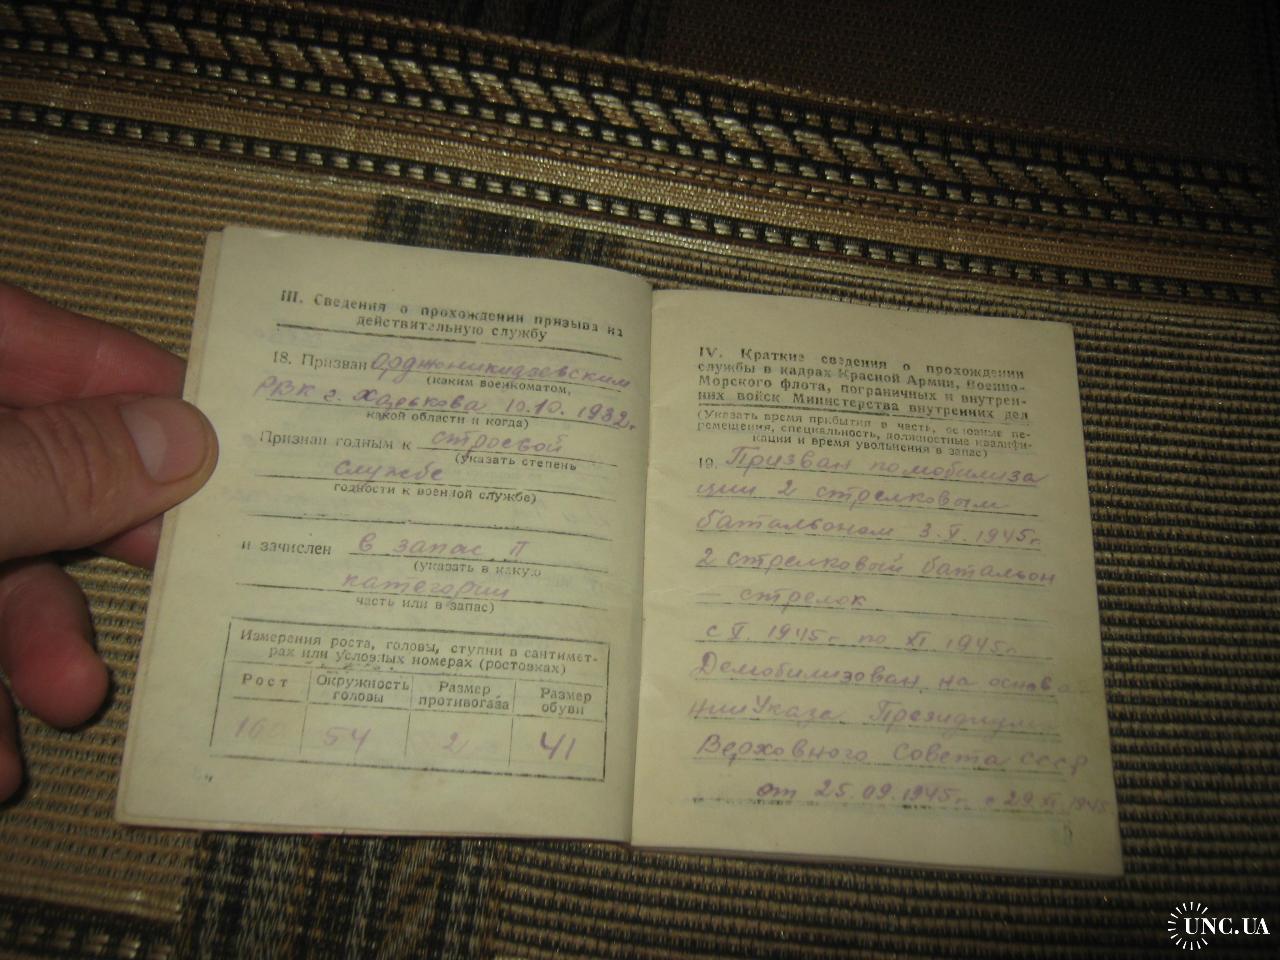 III. Сведения о прохождении призыва на
действительную службу
18. Призван Орджоникидзевским
(каким военкоматом,
РВК г. Харькова 10.10. 1932г.
какой области и когда)
Признан годным к строевой
(указать степень
службе
годности к военной службе)
и зачислен в запас II
(указать в какую
категории
часть или в запас)
Измерения роста, головы, ступни в сантимет-
рах или условных номерах (ростовках)
Рост
Окружность головы
Размер противогаза
Размер обуви
160 54 2 41
IV. Краткие сведения о прохождении
службы в кадрах Красной Армии, Военно-
Морского флота, пограничных и внутрен-
них войск Министерства внутренних дел
(Указать время прибытия в часть, основные пе-
ремещения, специальность, должностные квалифи-
кации и время увольнения в запас)
19. Призван по мобилиза
ции 2 стрелковым
батальоном 3.V.1945г.
2 стрелковый батальон
— стрелок
с V. 1945г. по XI 1945г.
Демобилизован на основа
нии Указа Президиума
Верховного Совета СССР
от 25.09.1945г. с 29.XI.1945
UNC.UA